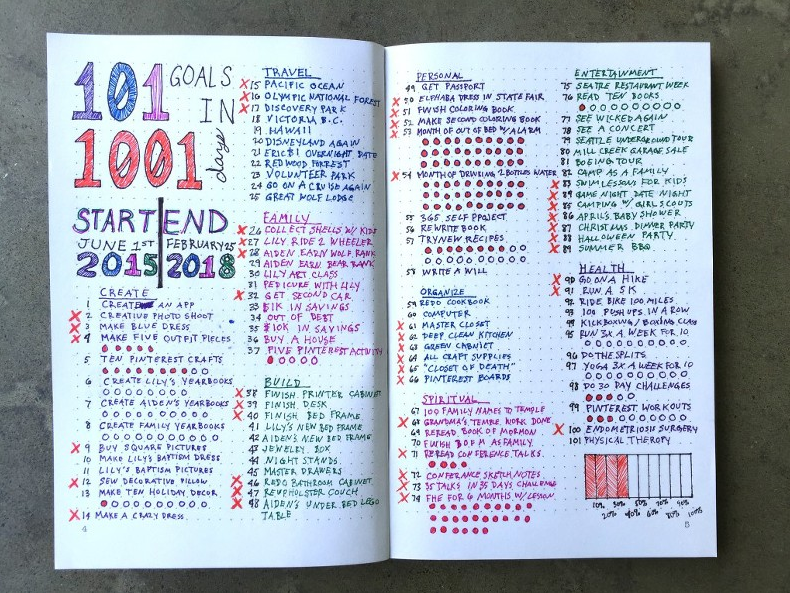 101 GOALS
IN
1001 days
START END
JUNE 1ST FEBRUARY 25
2015 2018
CREATE
1 CREATE AN APP
X 2 CREATIVE PHOTO SHOOT
X 3 MAKE BLUE DRESS
X 4 MAKE FIVE OUTFIT PIECES
5 TEN PINTEREST CRAFTS
6 CREATE LILY'S YEARBOOKS
7 CREATE AIDEN'S YEARBOOKS
8 CREATE FAMILY YEARBOOKS
X 9 BUY SQUARE PICTURES
10 MAKE LILY'S BAPTISM DRESS
11 LILY'S BAPTISM PICTURES
X 12 SEW DECORATIVE PILLOW
13 MAKE TEN HOLIDAY DECOR
X 14 MAKE A CRAZY DRESS
4
TRAVEL
X 15 PACIFIC OCEAN
X 16 OLYMPIC NATIONAL FOREST
X 17 DISCOVERY PARK
18 VICTORIA B.C.
19 HAWAII
20 DISNEYLAND AGAIN
21 ERIC $1 OVERNIGHT DATE
22 REDWOOD FORREST
23 VOLUNTEER PARK
24 GO ON A CRUISE AGAIN
25 GREAT WOLF LODGE
FAMILY
X 26 COLLECT SHELLS W/ KIDS
X 27 LILY RIDE 2 WHEELER
X 28 AIDEN EARN WOLF RANK
29 AIDEN EARN BEAR RANK
30 LILY ART CLASS
31 PEDICURE WITH LILY
X 32 GET SECOND CAR
33 $1K IN SAVINGS
34 OUT OF DEBT
35 $10K IN SAVINGS
36 BUY A HOUSE
37 FIVE PINTEREST ACTIVITY
BUILD
X 38 FINISH PRINTER CABINET
X 39 FINISH DESK
X 40 FINISH BED FRAME
41 LILY'S NEW BED FRAME
42 AIDEN'S NEW BED FRAME
43 JEWELRY BOX
44 NIGHT STANDS
45 MASTER DRAWERS
X 46 REDO BATHROOM CABINET
X 47 REUPHOLSTER COUCH
X 48 AIDEN'S UNDER BED LEGO
TABLE
PERSONAL
49 GET PASSPORT
X 50 ELPHABA DRESS IN STATE FAIR
X 51 FINISH COLORING BOOK
X 52 MAKE SECOND COLORING BOOK
X 53 MONTH OF OUT OF BED W/ ALARM
X 54 MONTH OF DRINKING 2 BOTTLES WATER
55 365 SELF PROJECT
56 REWRITE BOOK
57 TRY NEW RECIPES
58 WRITE A WILL
ORGANIZE
59 REDO COOKBOOK
60 COMPUTER
X 61 MASTER CLOSET
X 62 DEEP CLEAN KITCHEN
X 63 GREEN CABNIET
X 64 ALL CRAFT SUPPLIES
X 65 "CLOSET OF DEATH"
X 66 PINTEREST BOARDS
SPIRITUAL
67 100 FAMILY NAMES TO TEMPLE
X 68 GRANDMA'S TEMPLE WORK DONE
69 REREAD BOOK OF MORMON
70 FINISH B OF M AS FAMILY
X 71 REREAD CONFERENCE TALKS
X 72 CONFERANCE SKETCH NOTES
X 73 35 TALKS IN 35 DAYS CHALLENGE
X 74 FHE FOR 6 MONTHS W/ LESSON
ENTERTAINMENT
75 SEATTLE RESTAURANT WEEK
76 READ TEN BOOKS
77 SEE WICKED AGAIN
78 SEE A CONCERT
79 SEATTLE UNDERGROUND TOUR
80 MILL CREEK GARAGE SALE
81 BOEING TOUR
82 CAMP AS A FAMILY
X 83 SWIM LESSONS FOR KIDS
X 84 GAME NIGHT DATE NIGHT
X 85 CAMPING W/ GIRL SCOUTS
X 86 APRIL'S BABY SHOWER
X 87 CHRISTMAS DINNER PARTY
X 88 HALLOWEEN PARTY
X 89 SUMMER BBQ
HEALTH
X 90 GO ON A HIKE
X 91 RUN A 5K
92 RIDE BIKE 100 MILES
93 100 PUSH UPS IN A ROW
94 KICKBOXING/BOXING CLASS
95 RUN 3X A WEEK FOR 10
96 DO THE SPLITS
97 YOGA 3X A WEEK FOR 10
98 DO 30 DAY CHALLENGES
99 PINTEREST WORKOUTS
X 100 ENDOMETRIOSIS SURGERY
101 PHYSICAL THERAPY
10% 30% 50% 70% 90%
20% 40% 60% 80% 100%
5